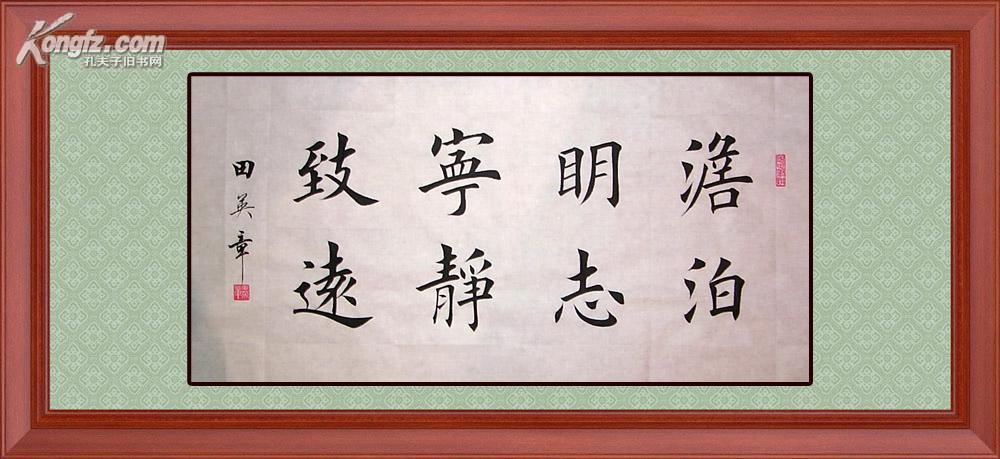 澹泊
明志
寧靜
致遠
田英章
Kongfz.com
孔夫子旧书网